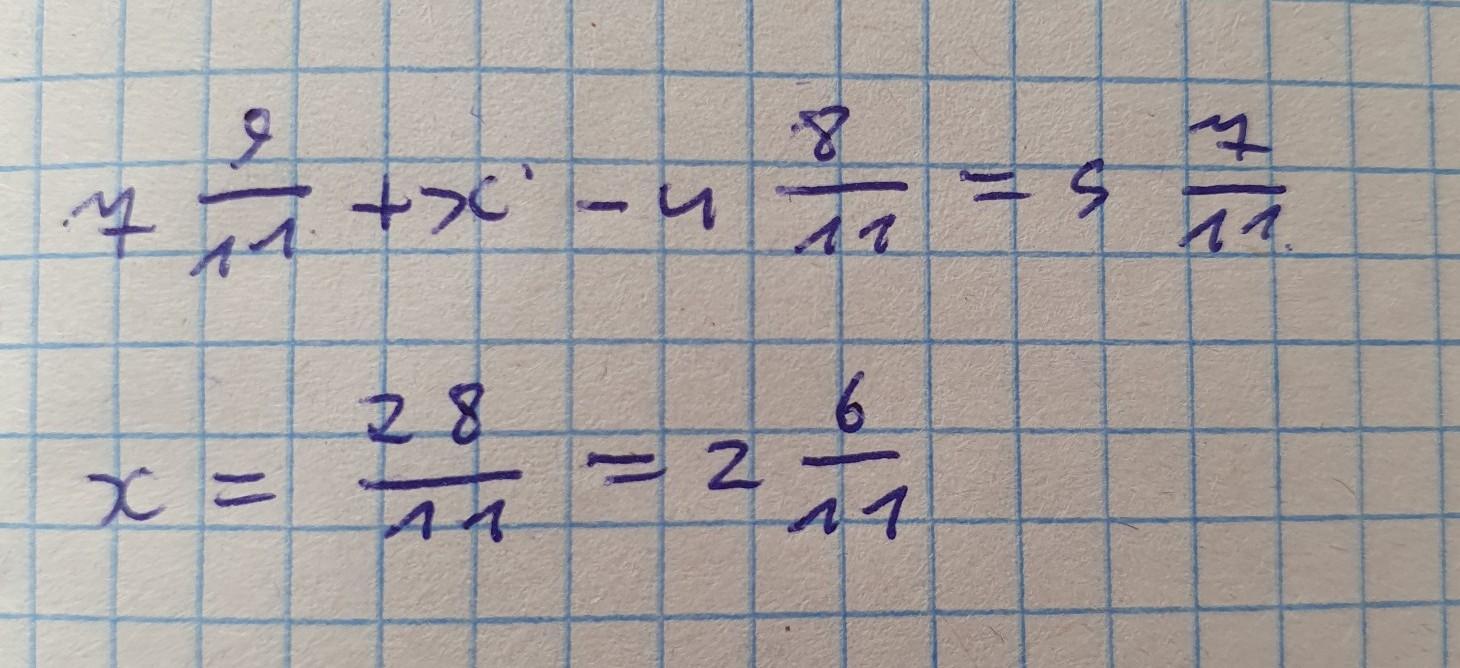 7 9/11 + x - 4 8/11 = 5 7/11
x = 28/11 = 2 6/11